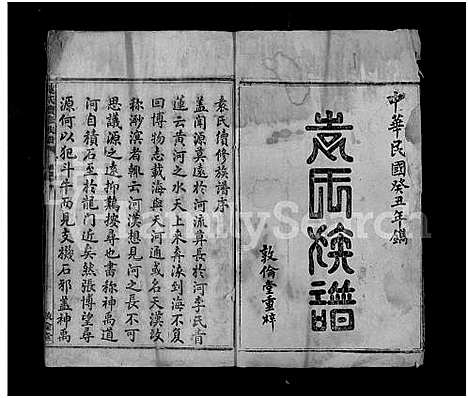 中華民國癸丑年鐫
袁氏族譜
敦倫堂重梓
袁氏續修族譜序
蓋聞源莫遠於河流算長於河李氏青
蓮云黃河之水天上來奔流到海不復
回博物志載海與天河通或名天漢故
稱渺溟者輒云河漢想見河之長不可
思議源之遠抑難按尋也書稱神禹道
河自積石至於龍門近矣然張博望尋
源何以犯斗牛而見支機石邪蓋神禹
FamilySearch